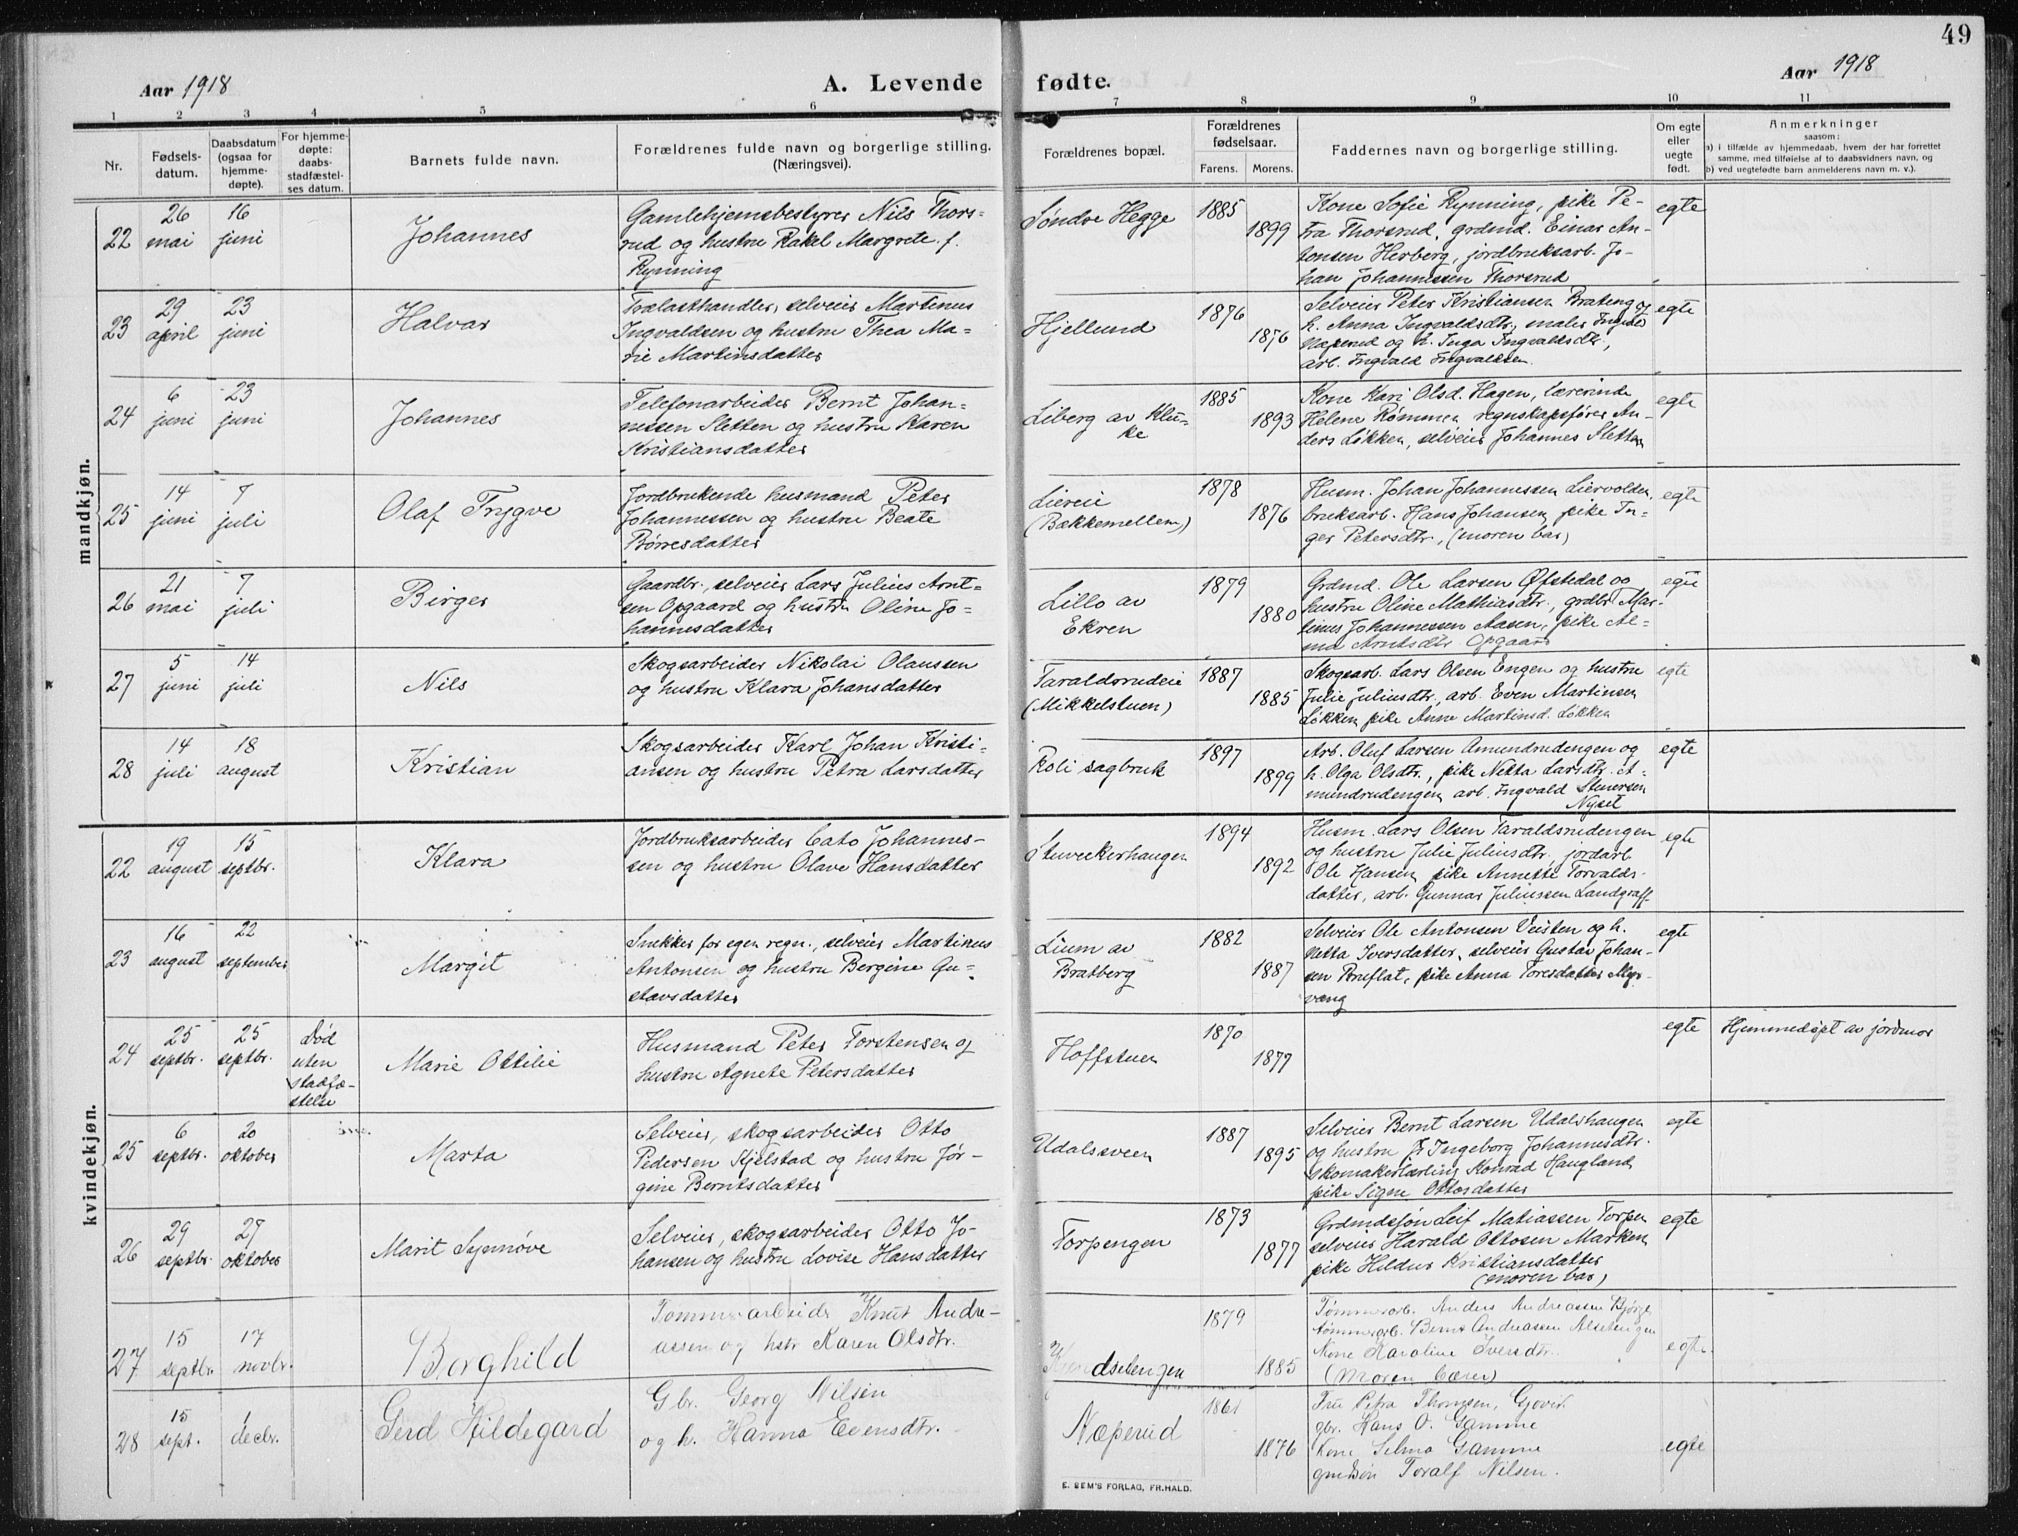 49
Aar 1918
A. Levende fødte.
Aar 1918
1 2 3 4 5 6 7 8 9 10 11
Nr.
Fødsels-
datum.
Daabsdatum
(ogsaa for
hjemme-
døpte).
For hjemme-
døpte:
daabs-
stadfæstel-
ses datum.
Barnets fulde navn.
Forældrenes fulde navn og borgerlige stilling.
(Næringsvei).
Forældrenes bopæl.
Forældrenes
fødselsaar.
Farens. Morens.
Faddernes navn og borgerlige stilling.
Om egte
eller
uegte
født.
Anmerkninger
saasom:
a) i tilfælde av hjemmedaab, hvem der har forrettet
samme, med tilføielse af to daabsvidners navn, og
b) ved uegtefødte barn anmelderens navn m. v.).
mandkjøn.
22
26
mai
16
juni
Johannes
Gamlehjemsbestyrer Nils Thors-
rud og hustru Rakel Margrete f.
Rynning
Søndre Hegge
1885
1899
Kone Sofie Rynning, pike Pe-
tra Thorsrud, grdmd. Einar An-
tonsen Herberg, jordbruksarb. Jo-
han Johannessen Thorsrud
egte
23
29
april
23
juni
Halvar
Trælasthandler, selveier Martinus
Ingvaldsen og hustru Thea Ma-
rie Martinsdatter
Hjellund
1876
1876
Selveier Peter Kristiansen Brateng og
h. Anna Ingvaldsdtr., maler Ingvald
Næperud og h. Inga Ingvaldsdtr,
arb. Ingvald Ingvaldsen.
egte
24
6
juni
23
juni
Johannes
Telefonarbeider Bernt Johan-
nessen Sletten og hustru Karen
Kristiansdatter
Liberg av Klu-
ke
1885
1893
Kone Kari Olsd. Hagen, lærerinde
Helene Rømmen, regnskapsfører An-
ders Løkken, selveier Johannes Sletten
egte
25
14
juni
7
juli
Olaf Trygve
Jordbrukende husmand Peter
Johannessen og hustru Beate
Børresdatter
Liereie
(Bakkemellem)
1878
1876
Husm. Johan Johannessen Liervolden,
bruksarb. Hans Johansen, pike In-
ger Petersdtr., (moren bar)
egte
26
21
mai
7
juli
Birger
Gaardbr., selveier Lars Julius Arnt-
sen Opgaard og hustru Oline Jo-
hannesdatter
Lillo av
Ekren
1879
1880
Grdmd. Ole Larsen Øfstedal og
hustru Oline Mathiasdtr., grdbr Mar-
tinus Johannessen Aasen, pike Al-
ma Arntsdtr Opgaard
egte
27
5
juni
14
juli
Nils
Skogsarbeider Nikolai Olaussen
og hustru Klara Johansdatter
Taraldsrudeie
(Mikkelstuen)
1887
1885
Skogsarb. Lars Olsen Engen og hustru
Julie Juliusdtr., arb. Even Martinsen
Løkken, pike Anne Martinsd. Løkken
egte
28
14
juli
18
august
Kristian
Skogsarbeider Karl Johan Kristi-
ansen og hustru Petra Larsdatter
Roli sagbruk
1897
1899
Arb. Oluf Larsen Amundrudengen og
h. Olga Olsdtr., pike Netta Larsdtr. A-
mundrudengen, arb. Ingvald Stenersen
Nyset
egte
kvindekjøn.
22
19
august
15
septbr.
Klara
Jordbruksarbeider Cato Johannes-
sen og hustru Olave Hansdatter
Stuveekerhaugen
1894
1892
Husm. Lars Olsen Taraldsrudengen
og hustru Julie Juliusdtr. jordarb
Ole Hansen, pike Annette Torvalds-
datter, arb. Gunnar Juliussen Landgraff
egte
23
16
august
22
september
Margit
Snekker for egen regn., selveier Martinus
Antonsen og hustru Bergine Gu-
stavsdatter
Lium av
Bratberg
1882
1887
Selveier Ole Antonsen Veisten og h.
Netta Iversdatter, selveier Gustav Johan-
sen Bruflat, pike Anna Toresdatter Myr-
vang
egte
24
25
septbr.
25
septbr.
Død
uten
stadfæ-
stelse
Marie Ottilie
Husmand Peter Torstensen og
hustru Agnete Petersdatter
Hoffstuen
1870
1877
egte
Hjemmedøpt av jordmor
25
6
septbr.
20
oktober
Marta
Selveier, skogsarbeider Otto
Pedersen Kjelstad og hustru Jør-
gine Berntsdatter
Udalsveen
1887
1895
Selveier Bernt Larsen Udalshaugen
og hustru Ingeborg Johannesdtr.
skomakerlærling Konrad Haugland,
pike Signe Ottosdatter
egte
26
29
septbr.
27
oktober
Marit Synnøve
Selveier, skogsarbeider Otto Jo-
hansen og hustru Lovise Hansdatter
Torpengen
1873
1877
Grdmdssøn Leif Matiassen Torpen
selveier Harald Ottosen Marken,
pike Hildur Kristiansdatter
(moren bar)
egte
27
15
septbr.
17
novbr.
Borghild
Tømmerarbeider Knut Andre-
assen og hstr Karen Olsdtr.
1879
1885
Tømmerarb. Anders Andreassen Bjørge
tømmerarb. Bernt Andreassen
Kone Karoline Iversdtr.
(Moren bærer)
egte.
28
15
sept.
1
decbr.
Gerd Hildegard
Gbr. Georg Nilsen
og h. Hanna Evensdtr.
Næperud
1861
1876
Fru Petra Thomsen, Gjøvik
gbr. Hans O. Gamme
Kone Selma Gamme
gmdsøn Toralf Nilsen.
egte
E. SEM'S FORLAG, FR.HALD.